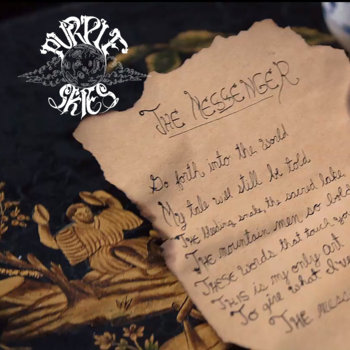 PURPLE
SKIES
THE MESSENGER
Go forth into the world
My tale will still be told
THE bleeding snake the sacred lake
THE mountain men so bold
THESE words that touch you
THIS is my only art
To give what I've
THE